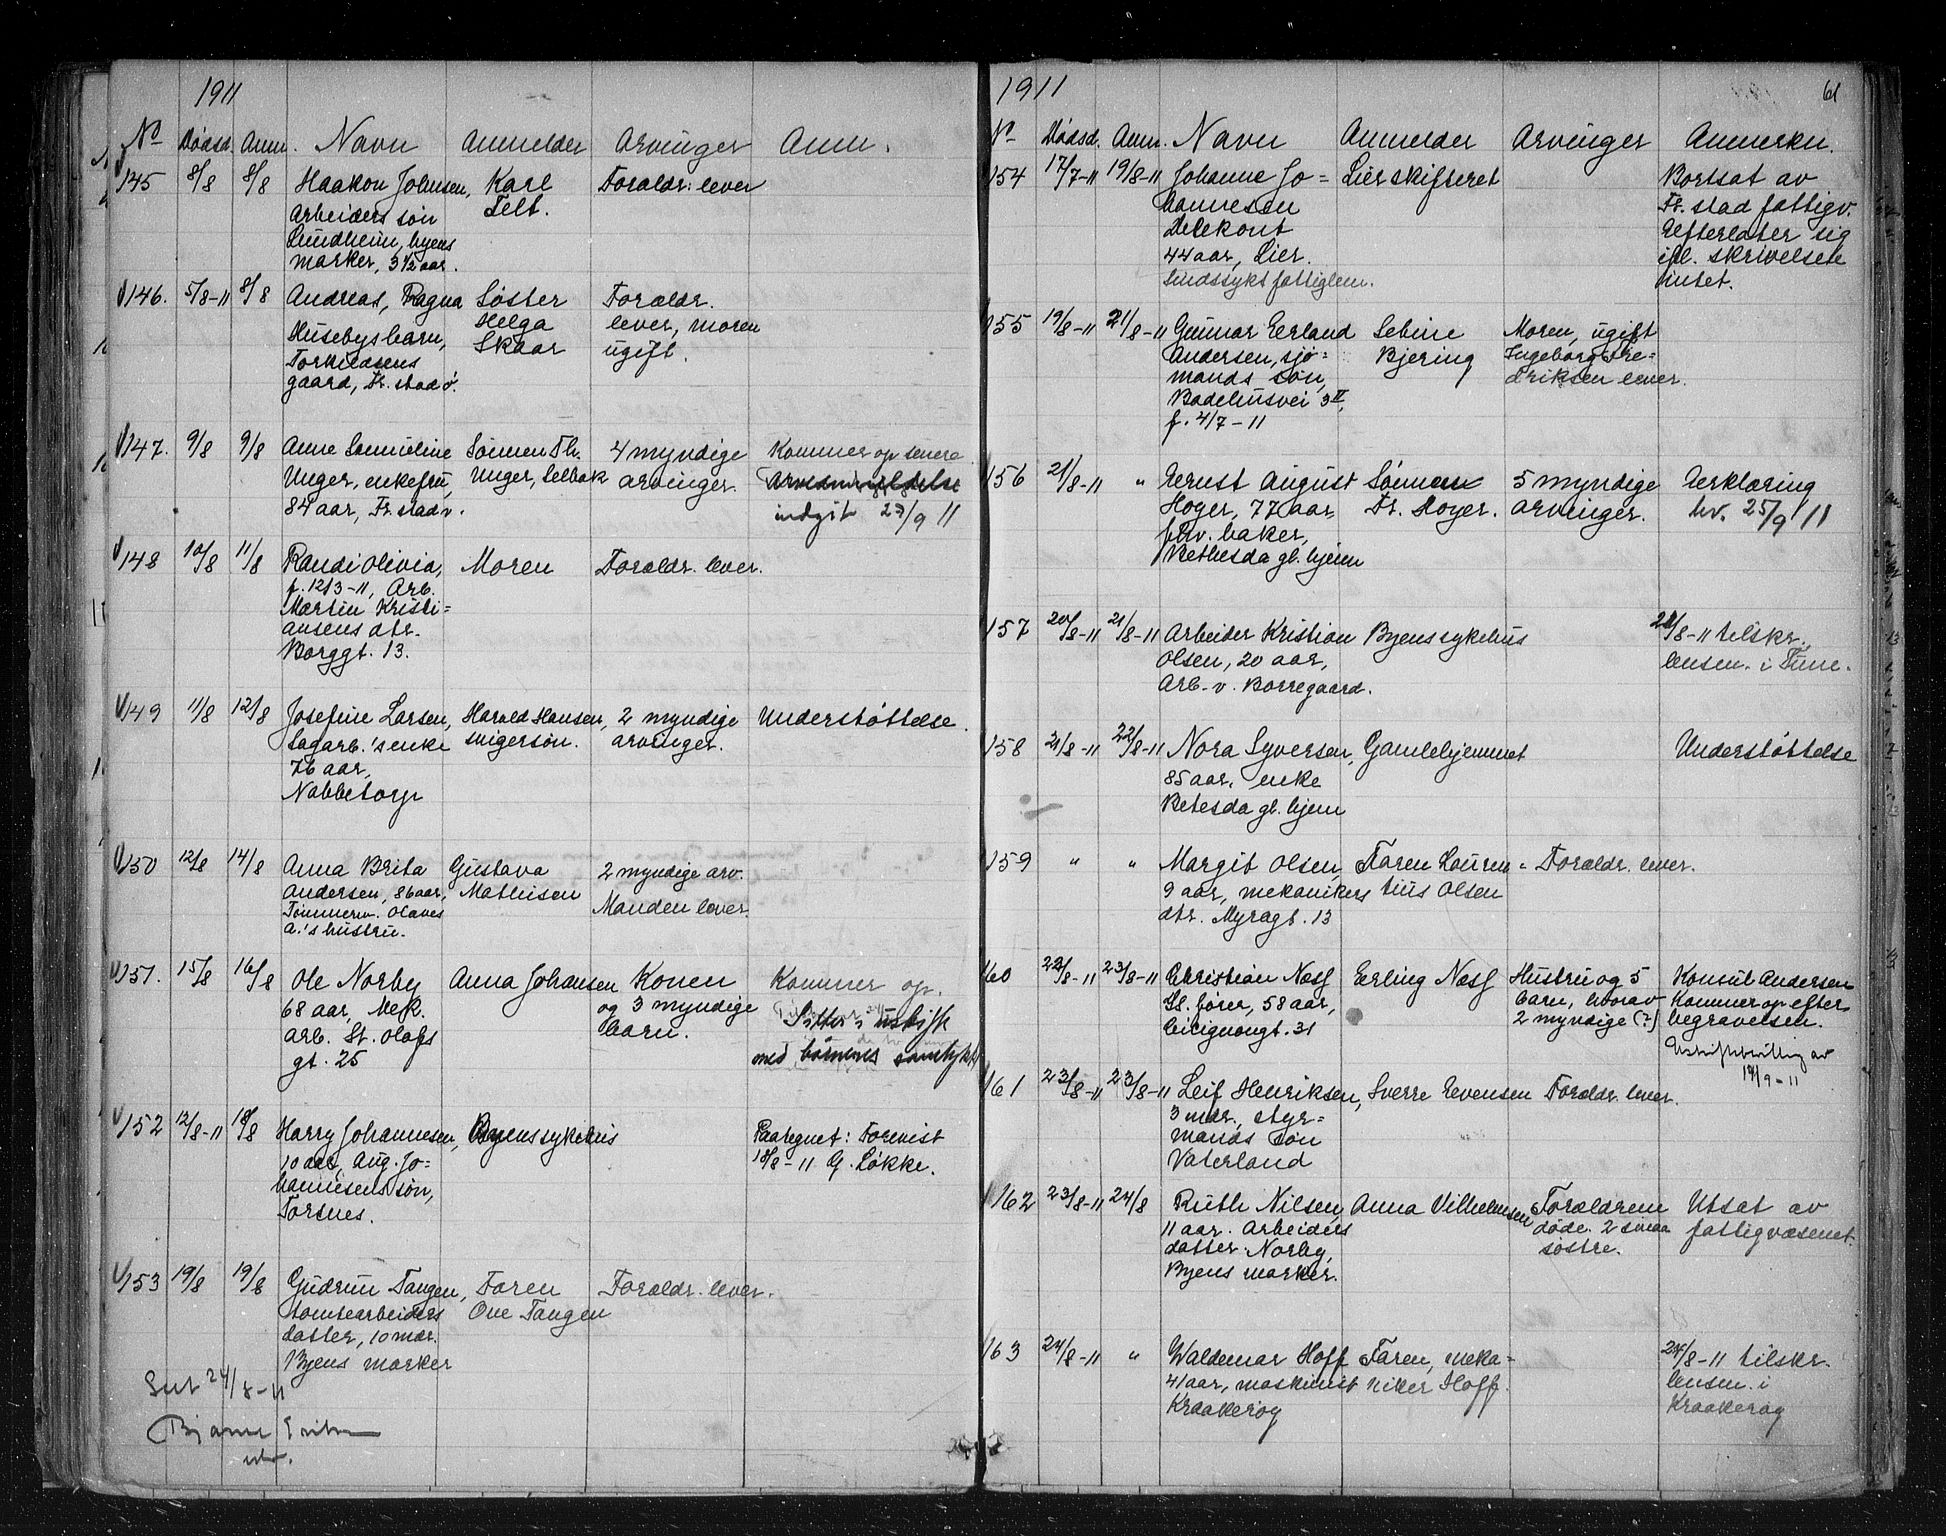 1911
No Dødsd. Anm. Navn Anmelder Arvinger Anm.
145 8/8 8/8 Haakon Johnsen, Karl Forældr. lever
Arbeiders søn Telt.
Lundheim, byens
marker, 3 1/2 aar.
146. 5/8-11 8/8 Andreas, Ragna Søster Forældr.
Husebys barn, Helga lever, moren
Torkildsens Skaar ugift.
gaard, Fr.stad v.
147. 9/8 9/8 Anne Sønnen Th. 4 myndige Kommer op senere
Unger, enkefru, Unger, Selbak arvinger.
84 aar, Fr.stad v. indgit 23/9 11
148 10/8 11/8 Randi Olivia, Moren Forældr. lever.
f. 12/3-11, Arb.
Martin Kristi=
ansens dtr.
Borggt. 13.
149 11/8 12/8 Josefine Larsen, Harald Hansen, 2 myndige Understøttelse.
Sagarb.'s enke svigersøn. arvinger.
76 aar,
Nabbetorp
150 12/8 14/8 Anna Brita Gustava 2 myndige arv.
Andersen, 86 aar, Mathisen Manden lever.
Tømmerm. Olaves
A.'s hustru.
151. 15/8 16/8 Ole Norby Anna Johansen Konen Kommer op.
68 aar, Mek. og 3 myndige Sitter i uskift
arb. St. Olafs barn. med børnenes samtykke
gt. 25
152 12/8-11 18/8 Harry Johannesen, Byens sykehus Paategnet: Forevist
10 aar, Aug. Jo= 18/8-11 G. Løkke.
hannesens søn,
Torsnes.
153 19/8 19/8 Gudrun Tangen, Faren Forældr. lever.
tomtearbeiders Ove Tangen
datter, 10 mdr.
Byens marker
24/8-11
Bjarne
1911 61
No Dødsd. Anm. Navn Anmelder Arvinger Anmerkn.
154 17/7-11 19/8-11 Johanne Jo= Lierskifteret Bortsat av
hannesen Fr.stad fattigv.
Delekont Efterlater sig
44 aar, Lier. ifl. skrivelsen
Sindssykt fattiglem. intet.
155 19/8-11 21/8-11 Gunnar Erland Sebine Moren, ugift
Andersen, sjø= Bjering Ingeborg Fre=
mands søn, driksen lever.
Badehusvei 3 II,
f. 4/7-11
156 21/8-11 " Ernst August Sønnen 5 myndige Erklæring
Hoyer, 77 aar Fr. Hoyer. arvinger. hv. 25/9 11
fhv. baker,
Bethesda gl. hjem
157 20/8-11 21/8-11 Arbeider Kristian Byens sykehus 22/8-11 tilskr.
Olsen, 20 aar, lensm. i Tune.
Arb. v. Borregaard.
158 21/8-11 22/8-11 Nora Syversen, Gamlehjemmet Understøttelse
85 aar, enke
Betesda gl. hjem
159 " " Margit Olsen, Faren Lauren= Forældr. lever.
9 aar, mekanikers tius Olsen
dtr. Myragt. 13
160 22/8-11 23/8-11 Christian Nass Erling Nass Hustru og 5 Konsul Andersen
58 aar, barn, hvorav kommer op efter
Cicignongt. 31 2 myndige (?) begravelsen.
Uskiftebevilling av
19/9-11
161 23/8-11 23/8-11 Leif Henriksen, Sverre Evensen Forældr. lever.
3 mdr., styr=
mands søn
Vaterland
162 23/8-11 24/8 Ruth Nilsen, Anna Vilhelmsen Forældrene Utsat av
11 aar. Arbeiders døde. 2 smaa fattigvæsenet.
datter. Norby, søstre.
Byens marker.
163 24/8-11 " Waldemar Hoff Faren, meka= 24/8-11 tilskr.
41 aar, maskinist niker Hoff. lensm. i
Kraakerøy Kraakerøy